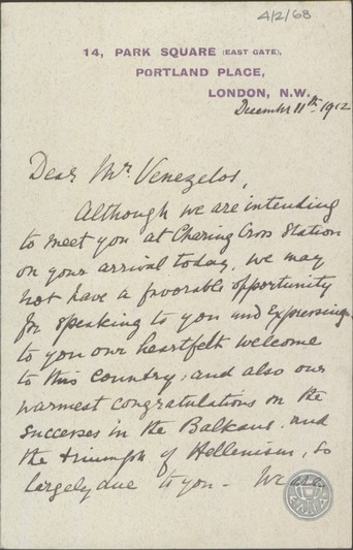 4/2/68
14, PARK SQUARE (EAST GATE),
PORTLAND PLACE,
LONDON, N.W.
December 11th 1912
Dear Mr. Venezelos,
Although we are intending
to meet you at Charing Cross Station
on your arrival today, we may
not have a favorable opportunity
for speaking to you and expressing
to you our heartfelt welcome
to this country; and also our
warmest congratulations on the
successes in the Balkans and
the triumph of Hellenism, so
largely due to you - We are